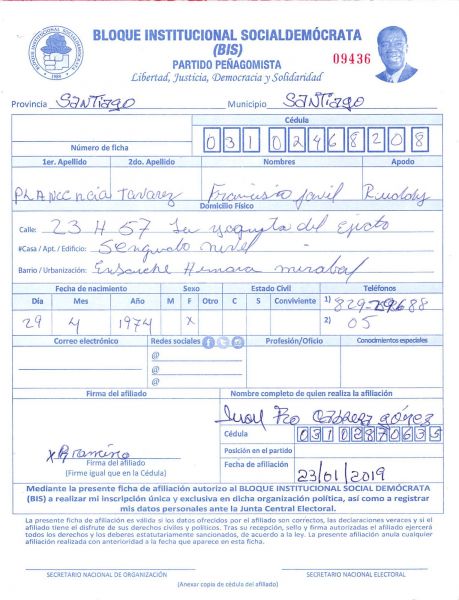 BLOQUE INSTITUCIONAL SOCIALDEMÓCRATA
(BIS)
PARTIDO PEÑAGOMISTA
09436
Libertad, Justicia, Democracia y Solidaridad
BLOQUE INSTITUCIONAL SOCIALDEMOCRATA
Provincia Santiago Municipio Santiago
Cédula
Número de ficha 03102468208
1er. Apellido 2do. Apellido Nombres Apodo
Plancencia Tavarez
Domicilio Físico
Calle: 23 # 57
#Casa / Apt. / Edificio: nivel
Barrio / Urbanización:
Fecha de nacimiento Sexo Estado Civil Teléfonos
Día Mes Año M F Otro C S Conviviente 1)
29 4 1974 X 2) 05
Correo electrónico Redes sociales Profesión/Oficio Conocimientos especiales
@
@
@
Firma del afiliado Nombre completo de quien realiza la afiliación
Cabrera Gómez
Cédula
Posición en el partido
Firma del afiliado
(Firme igual que en la Cédula)
Fecha de afiliación 23/01/2019
Mediante la presente ficha de afiliación autorizo al BLOQUE INSTITUCIONAL SOCIAL DEMÓCRATA
(BIS) a realizar mi inscripción única y exclusiva en dicha organización política, así como a registrar
mis datos personales ante la Junta Central Electoral.
La presente ficha de afiliación es válida si los datos ofrecidos por el afiliado son correctos, las declaraciones veraces y si el
afiliado tiene el disfrute de sus derechos civiles y políticos. Tras su recepción, sello y firma autorizadas el afiliado ejercerá
todos los derechos y los deberes estatutariamente sancionados, de acuerdo a la ley. La presente afiliación anula cualquier
afiliación realizada con anterioridad a la fecha que aparece en esta ficha.
SECRETARIO NACIONAL DE ORGANIZACIÓN SECRETARIO NACIONAL ELECTORAL
(Anexar copia de cédula del afiliado)